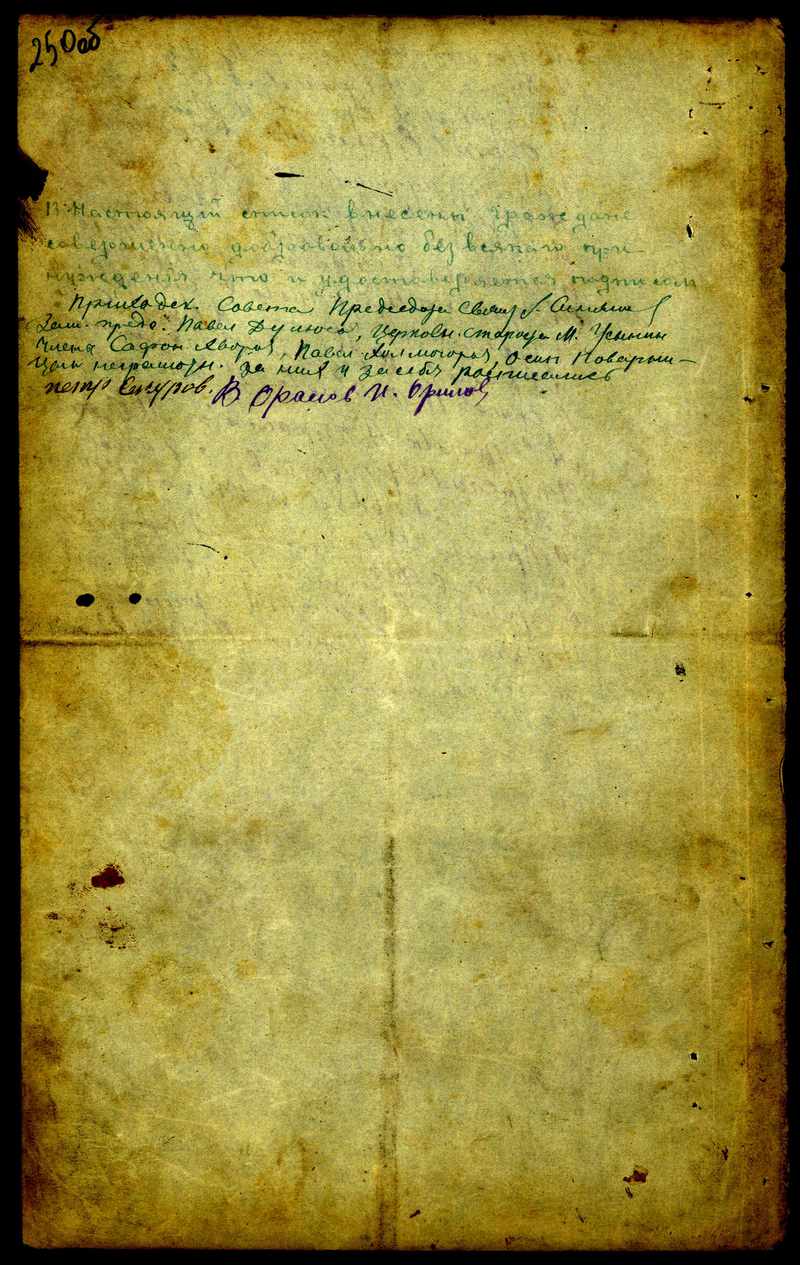 250об
В Настоящий список внесены граждане
совершенно добровольно без всякаго при
нуждения что и удостоверяется подписом
Приходск. Совета Председа Свящ
Зам. предс. Павел, Церковн. староста М.
Члена Сафон, Павел, Осип
неграмотн. За них и за себя росписались
петр В Орлов И. Орлов